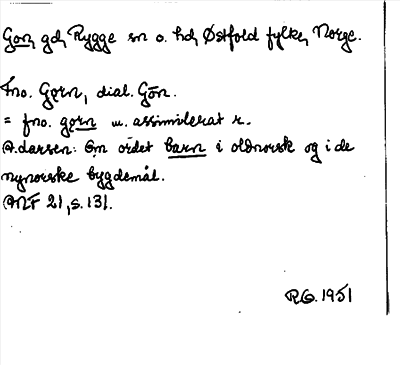 Gon, gd, Rygge sn o. hd, Østfold fylke, Norge.
Fno. Gǫrn, dial. Gōn.
= fno. gǫrn m. assimilerat r.
A. Larsen: Om ordet barn i oldnorsk og i de
nynorske bygdemål.
ANF 21, s. 131.
R.G. 1951